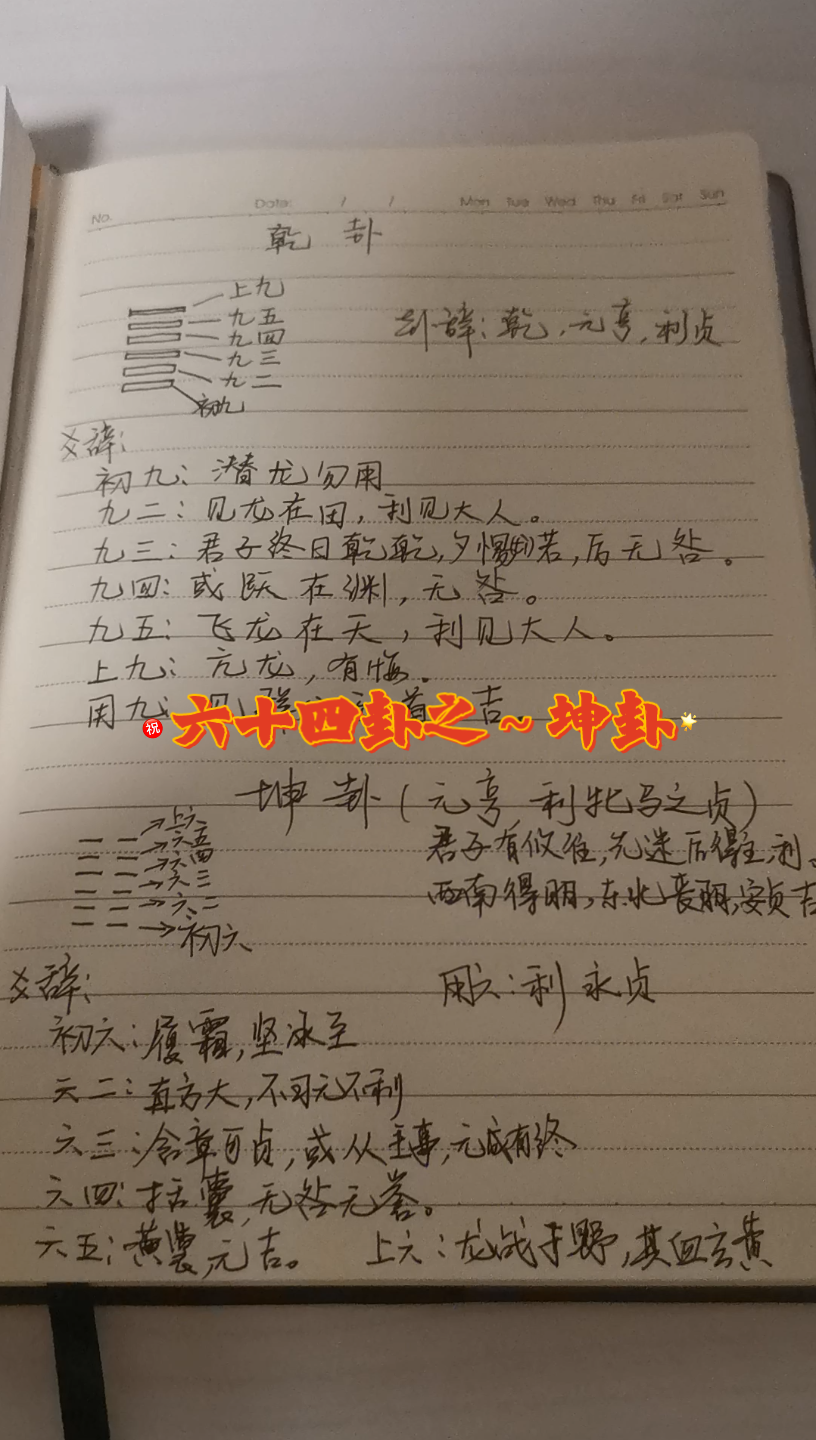 No.
Date: / /
Mon Tue Wed Thu Fri Sat Sun
乾 卦
上九
九五
九四
九三
九二
初九
卦辞：乾，元亨，利贞
爻辞：
初九：潜龙勿用
九二：见龙在田，利见大人。
九三：君子终日乾乾，夕惕若，厉无咎。
九四：或跃在渊，无咎。
九五：飞龙在天，利见大人。
上九：亢龙，有悔。
用九：吉
祝 六十四卦之~坤卦
坤卦（元亨，利牝马之贞）
上六
六五
六四
六三
六二
初六
君子有攸往，先迷后得主，利。
西南得朋，东北丧朋，安贞吉
爻辞：
用六：利永贞
初六：履霜，坚冰至
六二：直方大，不习无不利
六三：含章可贞，或从王事，无成有终
六四：括囊，无咎无誉。
六五：黄裳，元吉。
上六：龙战于野，其血玄黄